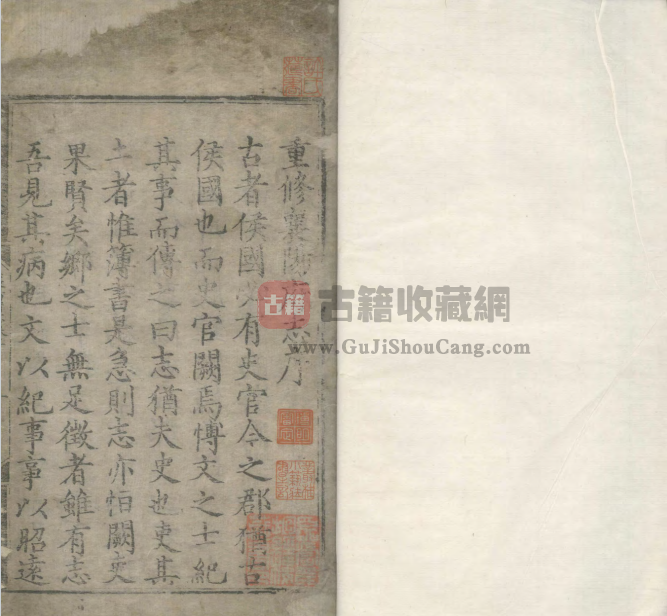 重修襄陽府志序
古者侯國必有史官今之郡猶古
侯國也而史官闕焉愽文之士紀
其事而傳之曰志猶夫史也吏其
土者惟簿書是急則志亦怕闕吏
果賢矣郷之士無足徵者雖有志
吾見其病也文以紀事事以昭遠
古籍
古籍收藏網
www.GuJiShouCang.com